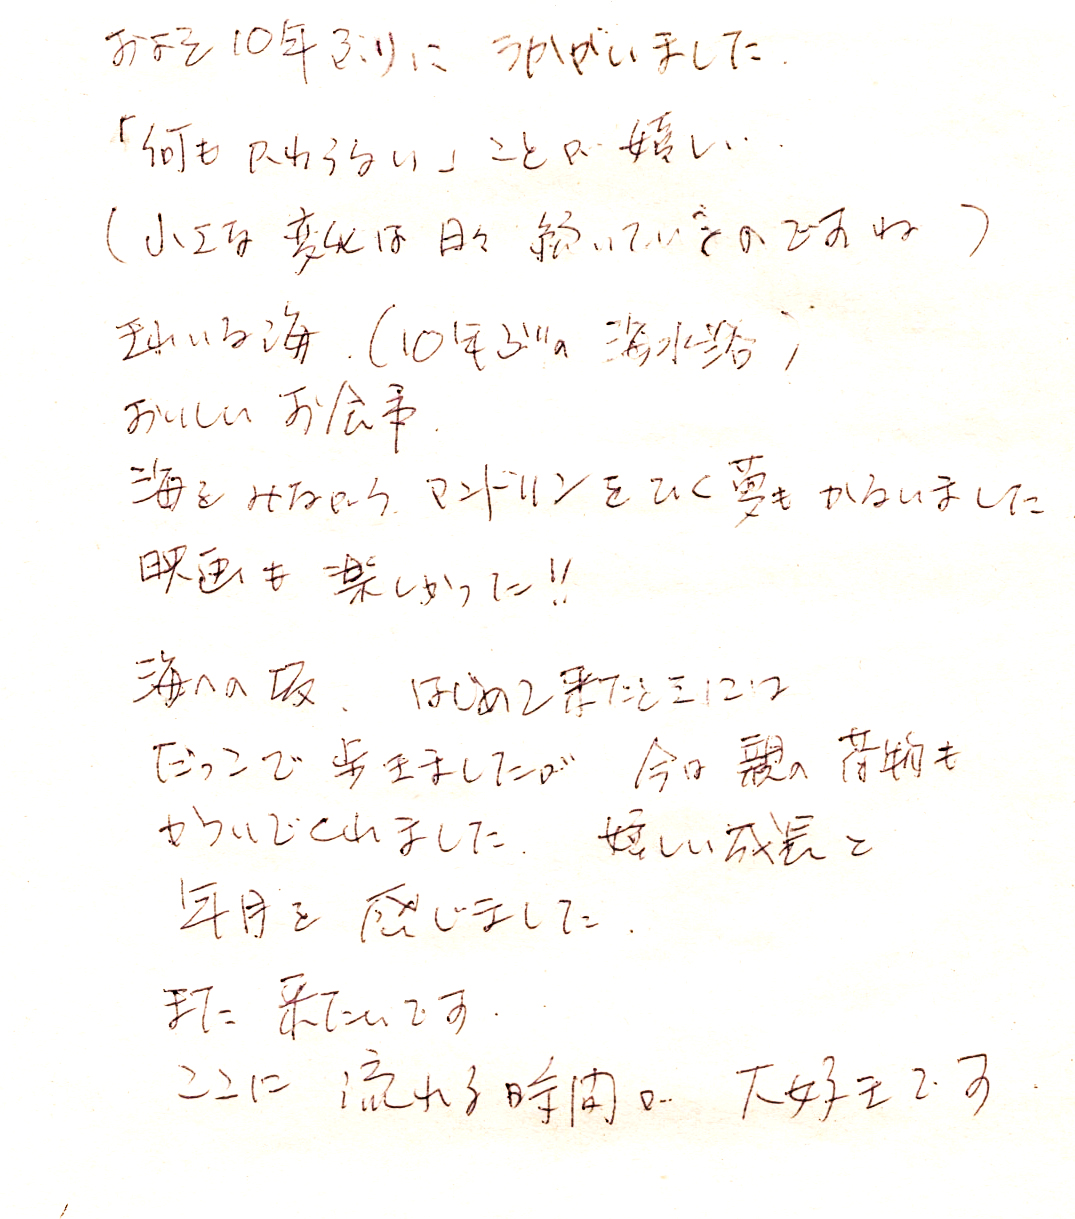 およそ10年ぶりに うかがいました.
「何もかわらない」ことが嬉しい.
(小さな変化は日々続いているのですね)
きれいな海.(10年ぶりの海水浴)
おいしいお食事.
海をみながら、マンドリンをひく夢もかないました.
映画も楽しかった!!
海への坂、はじめて来たときには
だっこで歩きましたが 今は親の荷物も
かついでくれました. 嬉しい成長と
年月を感じました.
また来たいです.
ここに流れる時間が 大好きです.